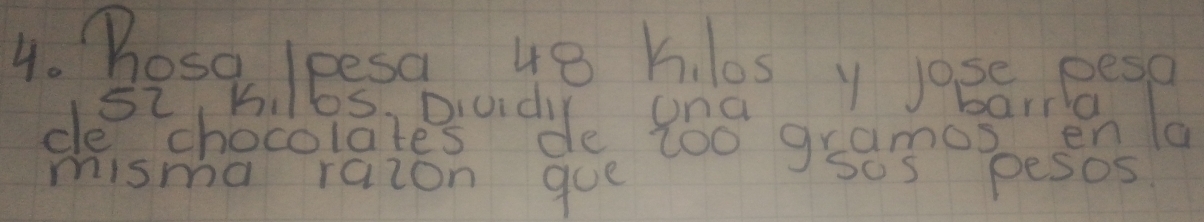 4. Rosa pesa 48 Kilos y jose pesa
52 kilos. Dividir una barra
de chocolates de 200 gramos en la
misma razon que sos pesos.